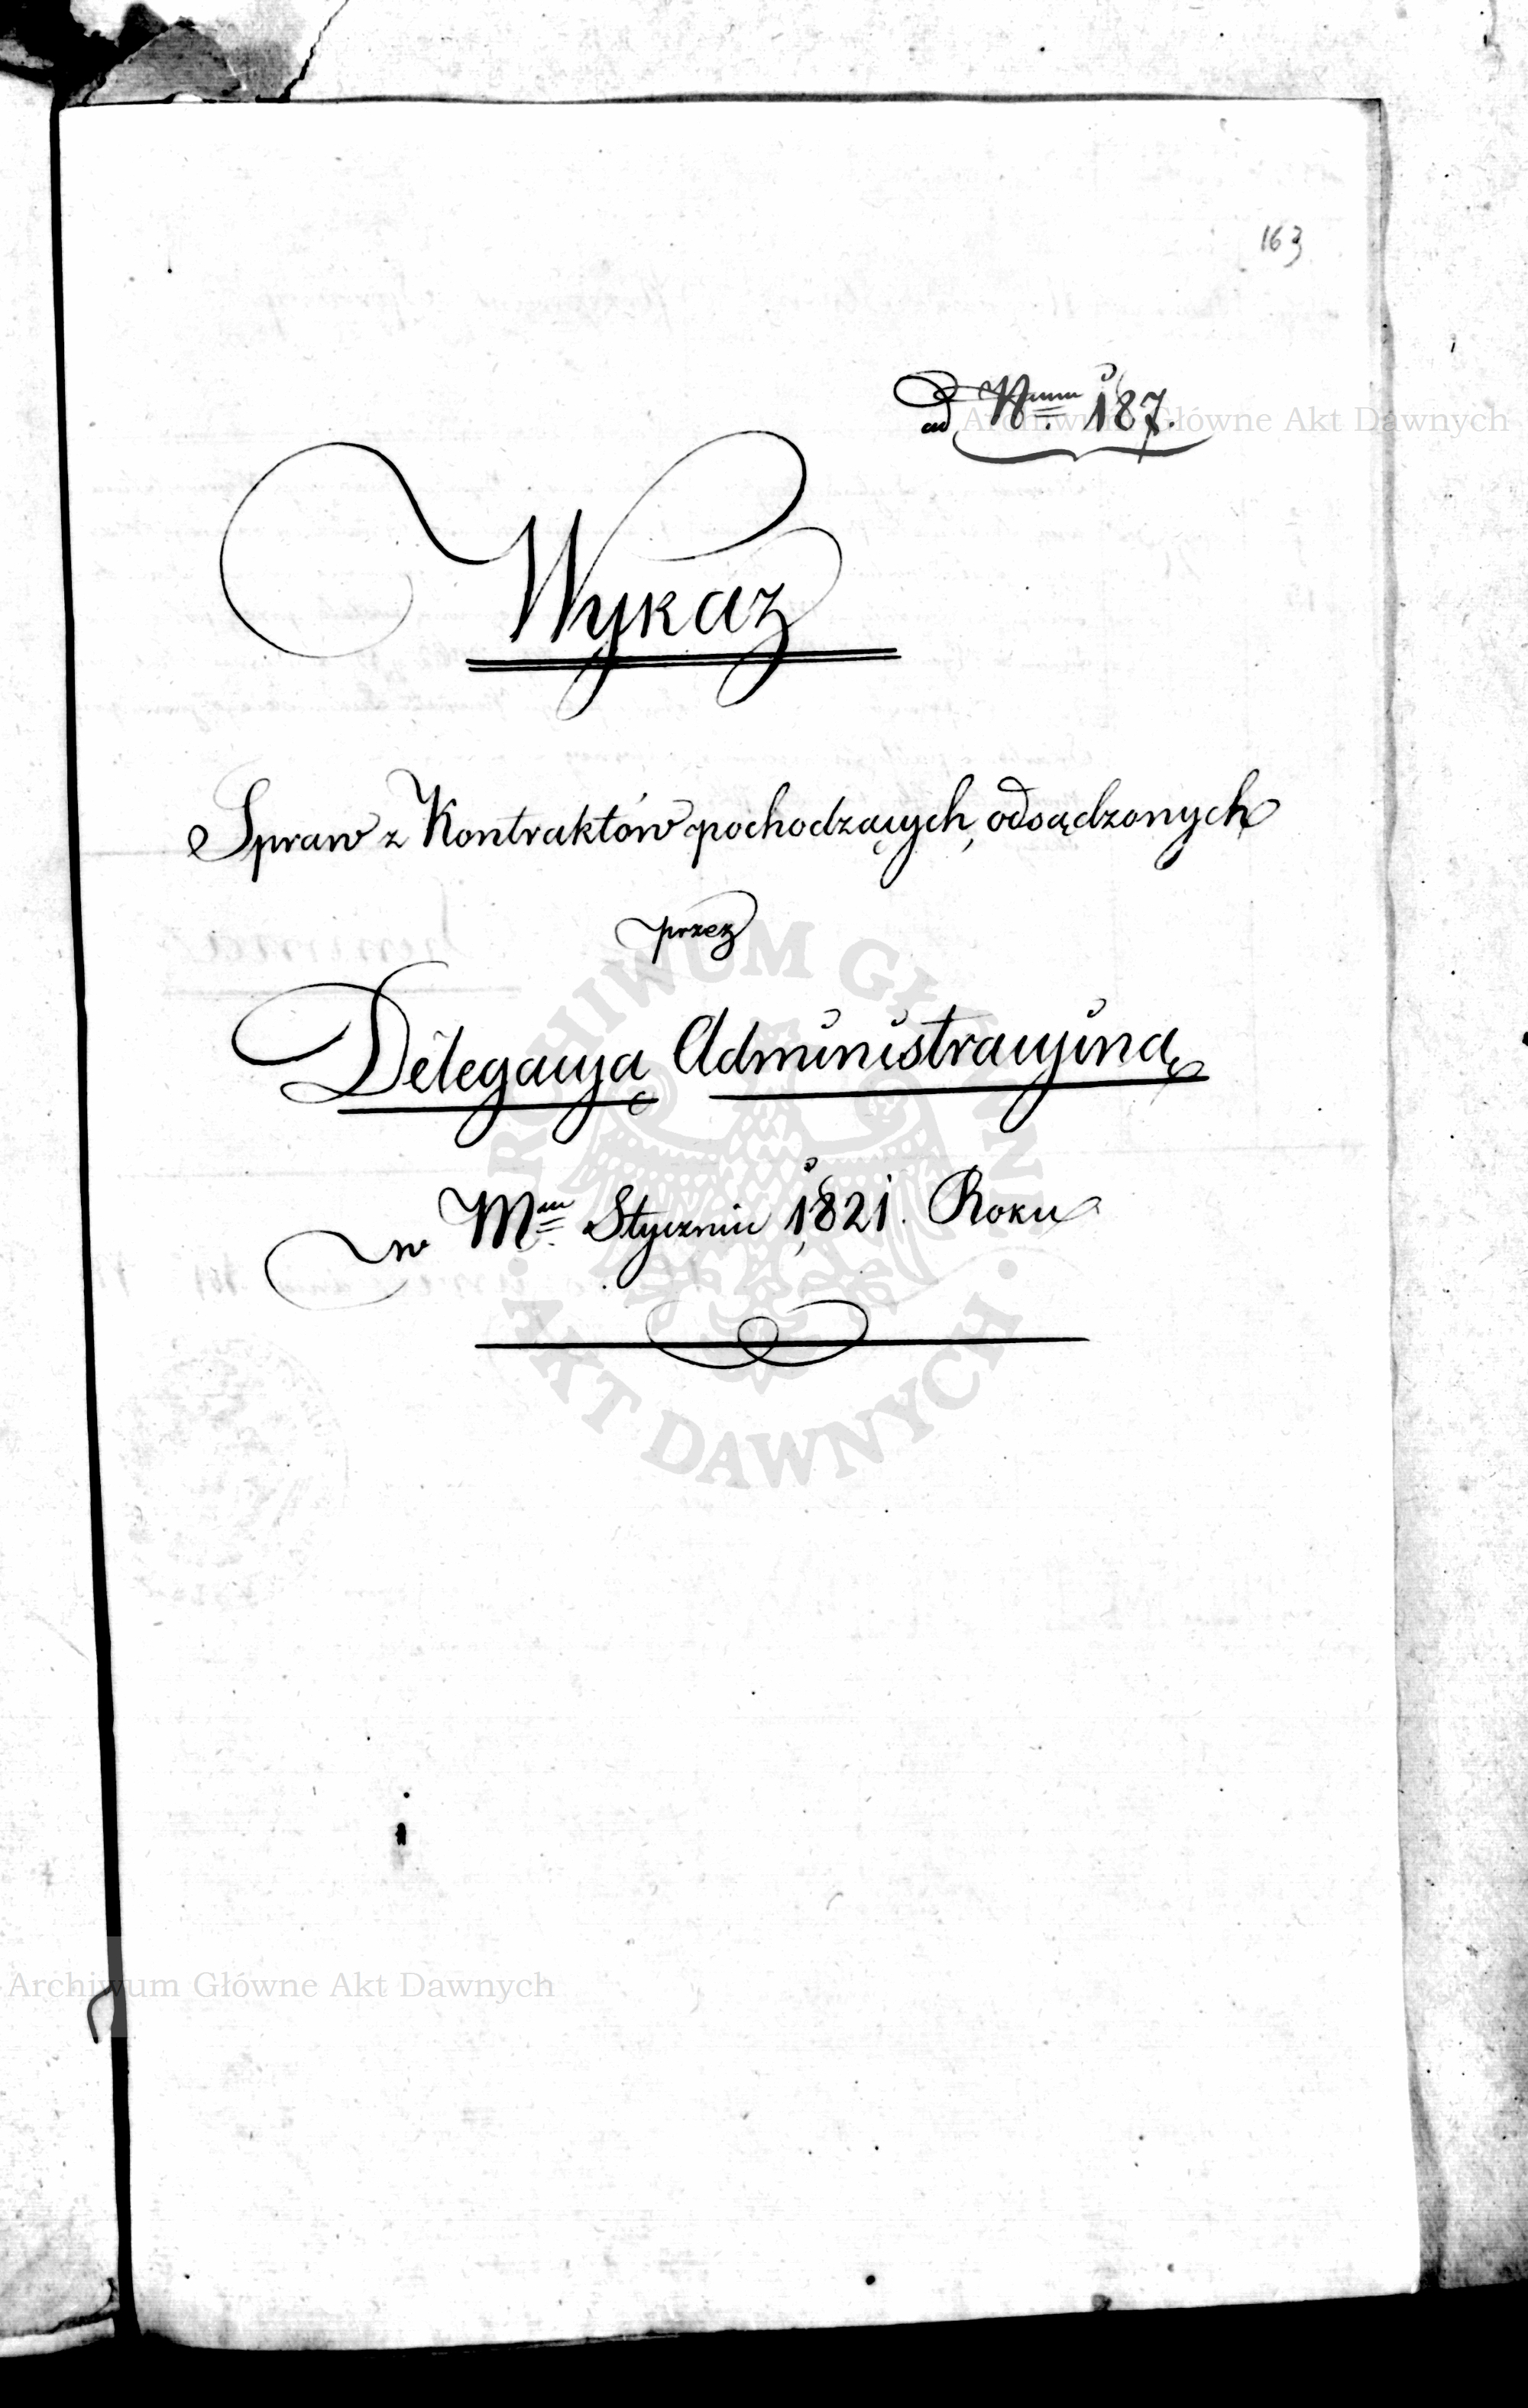 163
ad Nrum 187.
Archiwum Główne Akt Dawnych
Wykaz
Spraw z Kontraktów pochodzących, odsądzonych
przez
Delegacyą Administracyiną
w Mcu Styczniu 1821. Roku
ARCHIWUM GŁÓWNE
AKT DAWNYCH
Archiwum Główne Akt Dawnych